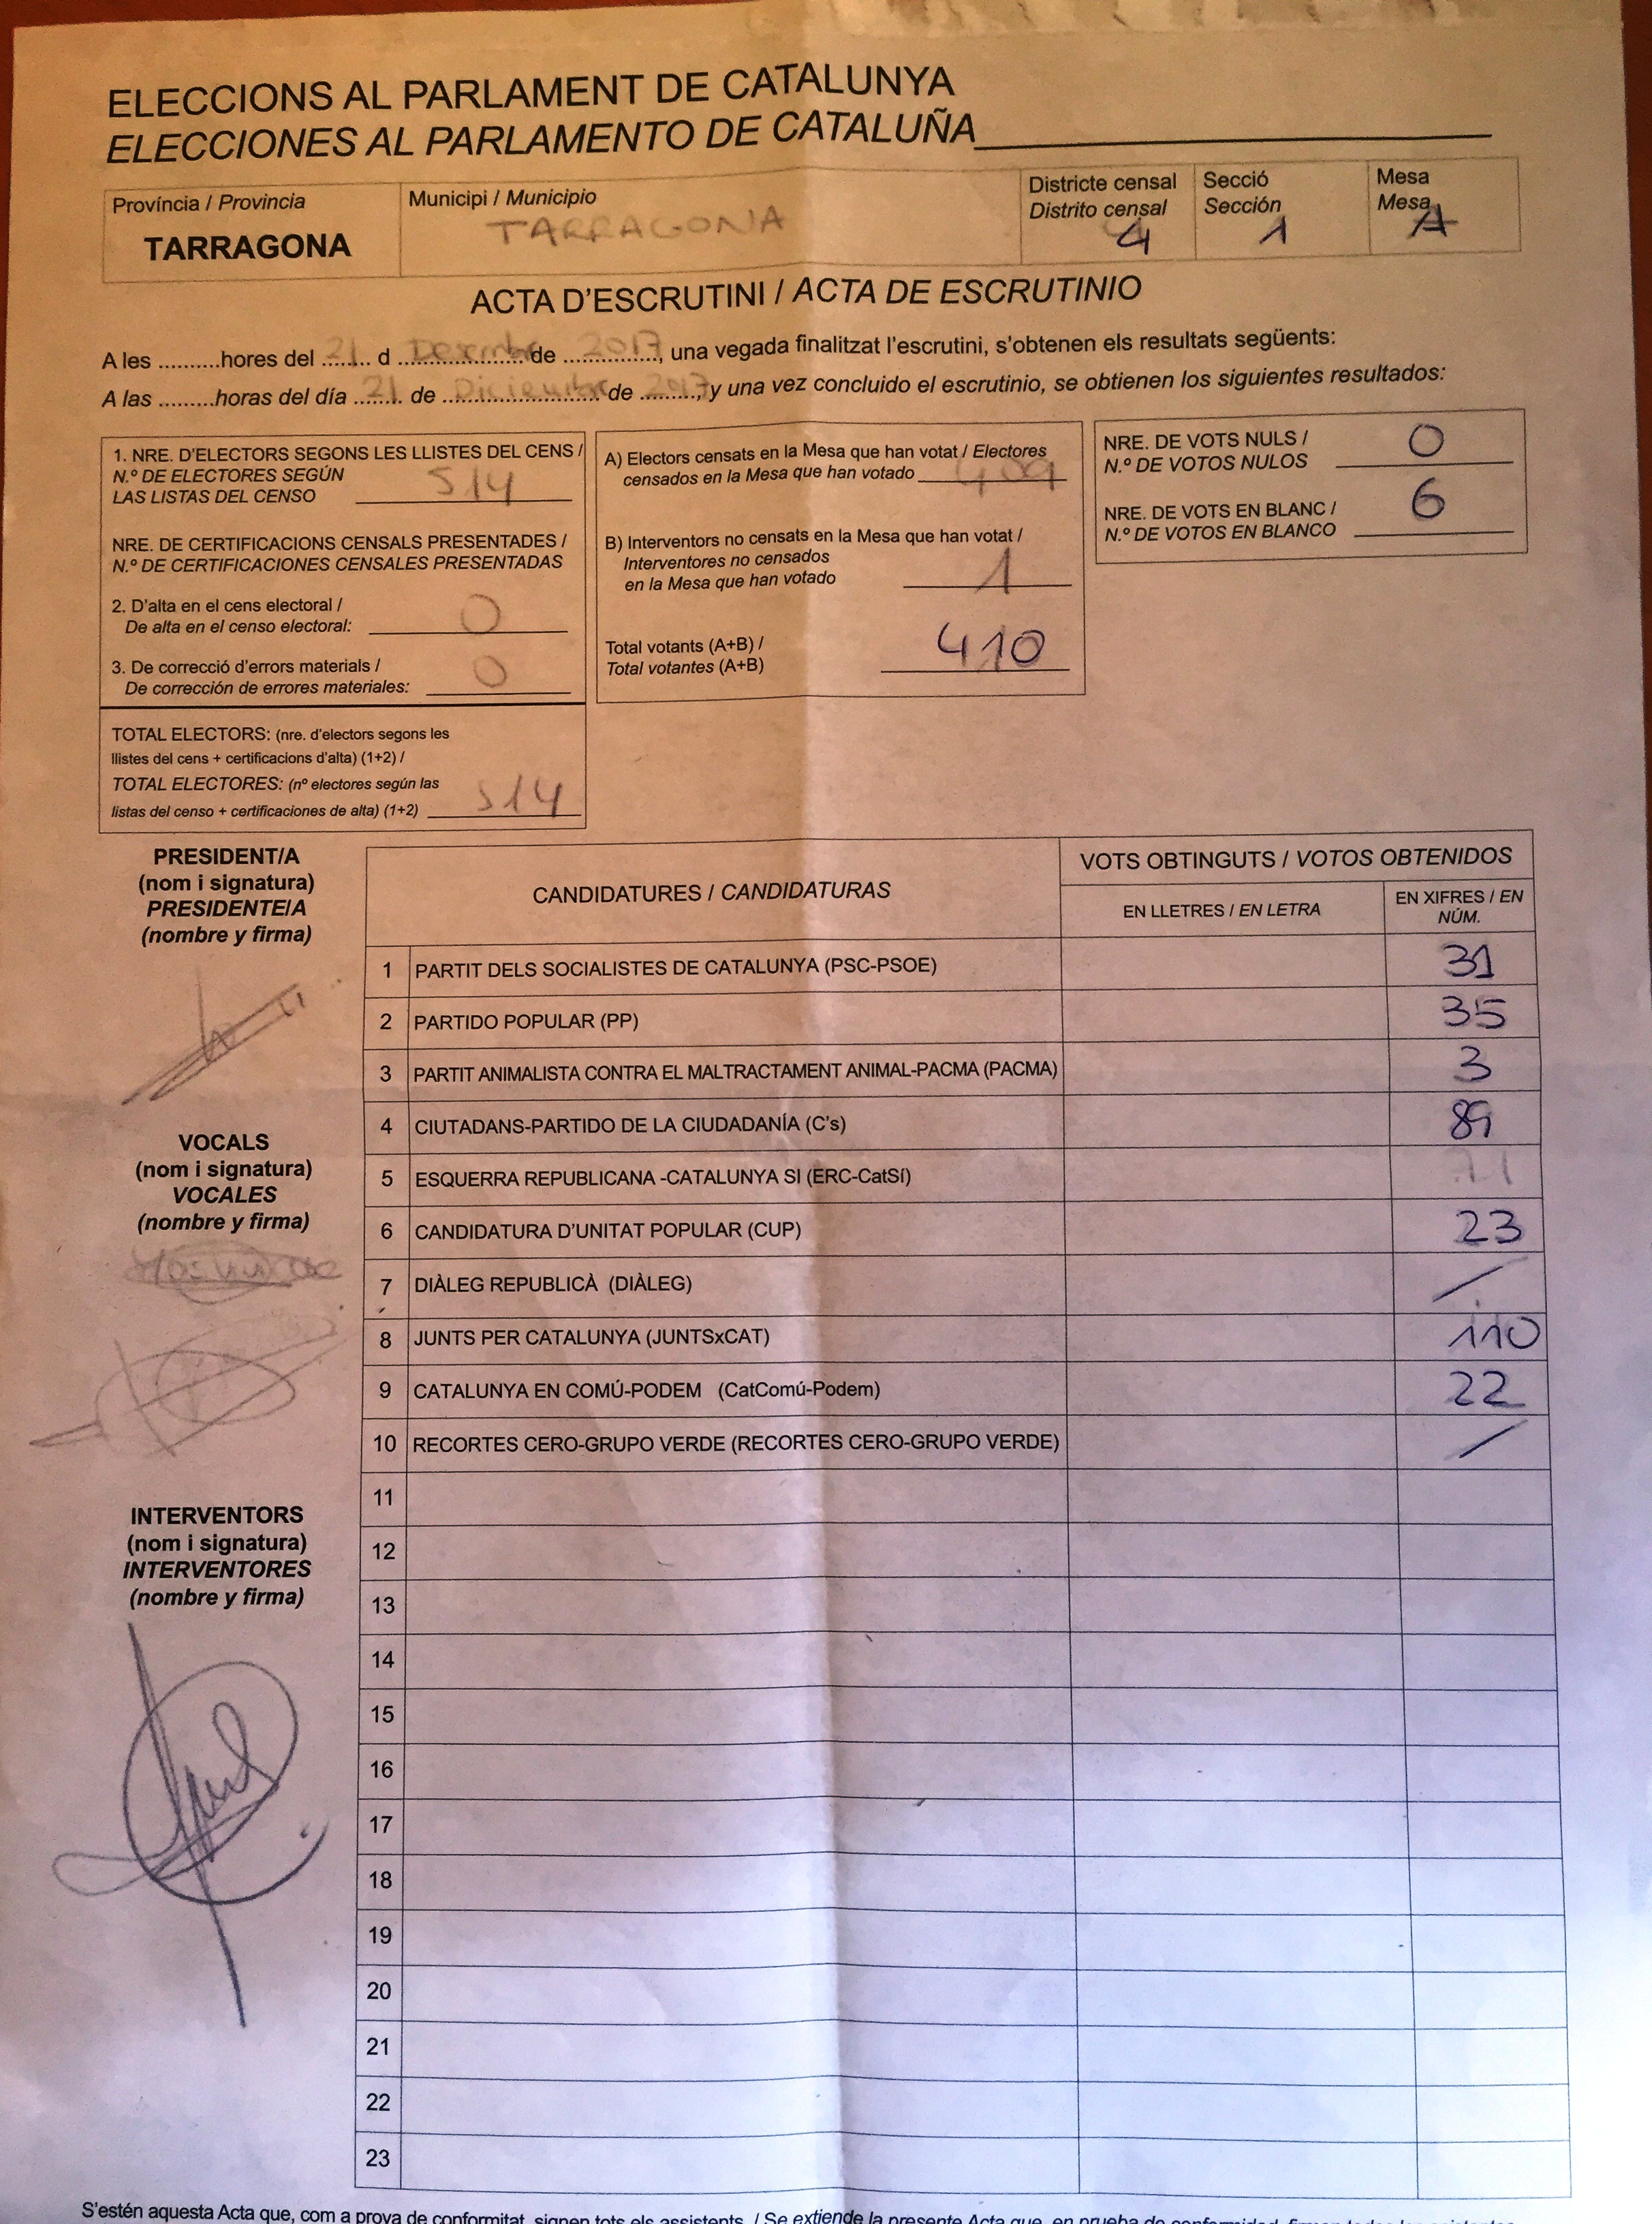 ELECCIONS AL PARLAMENT DE CATALUNYA
ELECCIONES AL PARLAMENTO DE CATALUÑA
Província / Provincia
TARRAGONA
Municipi / Municipio
TARRAGONA
Districte censal
Distrito censal
4
Secció
Sección
1
Mesa
Mesa
A
ACTA D'ESCRUTINI / ACTA DE ESCRUTINIO
A les ...........hores del ...21... d ...............de ...2017..., una vegada finalitzat l'escrutini, s'obtenen els resultats següents:
A las ..........horas del día ...21... de ...Diciembre... de ...2017..., y una vez concluido el escrutinio, se obtienen los siguientes resultados:
1. NRE. D'ELECTORS SEGONS LES LLISTES DEL CENS /
N.º DE ELECTORES SEGÚN
LAS LISTAS DEL CENSO 514
NRE. DE CERTIFICACIONS CENSALS PRESENTADES /
N.º DE CERTIFICACIONES CENSALES PRESENTADAS
2. D'alta en el cens electoral /
De alta en el censo electoral: 0
3. De correcció d'errors materials /
De corrección de errores materiales: 0
TOTAL ELECTORS: (nre. d'electors segons les
llistes del cens + certificacions d'alta) (1+2) /
TOTAL ELECTORES: (nº electores según las
listas del censo + certificaciones de alta) (1+2) 514
A) Electors censats en la Mesa que han votat / Electores
censados en la Mesa que han votado 409
B) Interventors no censats en la Mesa que han votat /
Interventores no censados
en la Mesa que han votado 1
Total votants (A+B) /
Total votantes (A+B) 410
NRE. DE VOTS NULS /
N.º DE VOTOS NULOS 0
NRE. DE VOTS EN BLANC /
N.º DE VOTOS EN BLANCO 6
PRESIDENT/A
(nom i signatura)
PRESIDENTE/A
(nombre y firma)
VOCALS
(nom i signatura)
VOCALES
(nombre y firma)
INTERVENTORS
(nom i signatura)
INTERVENTORES
(nombre y firma)
CANDIDATURES / CANDIDATURAS
VOTS OBTINGUTS / VOTOS OBTENIDOS
EN LLETRES / EN LETRA
EN XIFRES / EN NÚM.
1 PARTIT DELS SOCIALISTES DE CATALUNYA (PSC-PSOE) 31
2 PARTIDO POPULAR (PP) 35
3 PARTIT ANIMALISTA CONTRA EL MALTRACTAMENT ANIMAL-PACMA (PACMA) 3
4 CIUTADANS-PARTIDO DE LA CIUDADANÍA (C's) 89
5 ESQUERRA REPUBLICANA -CATALUNYA SI (ERC-CatSí)
6 CANDIDATURA D'UNITAT POPULAR (CUP) 23
7 DIÀLEG REPUBLICÀ (DIÀLEG) /
8 JUNTS PER CATALUNYA (JUNTSxCAT) 110
9 CATALUNYA EN COMÚ-PODEM (CatComú-Podem) 22
10 RECORTES CERO-GRUPO VERDE (RECORTES CERO-GRUPO VERDE) /
11
12
13
14
15
16
17
18
19
20
21
22
23
S'estén aquesta Acta que, com a prova de conformitat, signen tots els assistents. / Se extiende la presente Acta que, en prueba de conformidad,